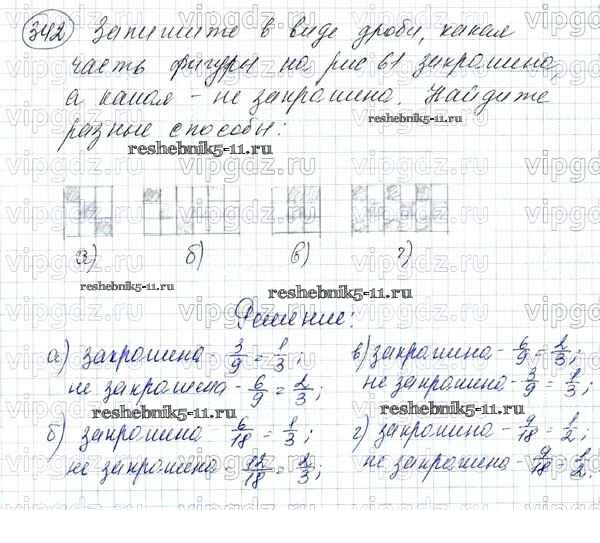 342 Запишите в виде дроби, какая
часть фигуры на рис 61 закрашена,
а какая - не закрашена. Найдите
разные способы:
reshebnik5-11.ru
reshebnik5-11.ru
а) б) в) г)
reshebnik5-11.ru
reshebnik5-11.ru
Решение:
а) закрашена - 3/9 = 1/3;
не закрашена - 6/9 = 2/3;
reshebnik5-11.ru
б) закрашена - 6/18 = 1/3;
не закрашена - 12/18 = 2/3;
в) закрашена - 6/9 = 2/3;
не закрашена - 3/9 = 1/3;
reshebnik5-11.ru
г) закрашена - 9/18 = 1/2;
не закрашена - 9/18 = 1/2.
vipgdz.ru